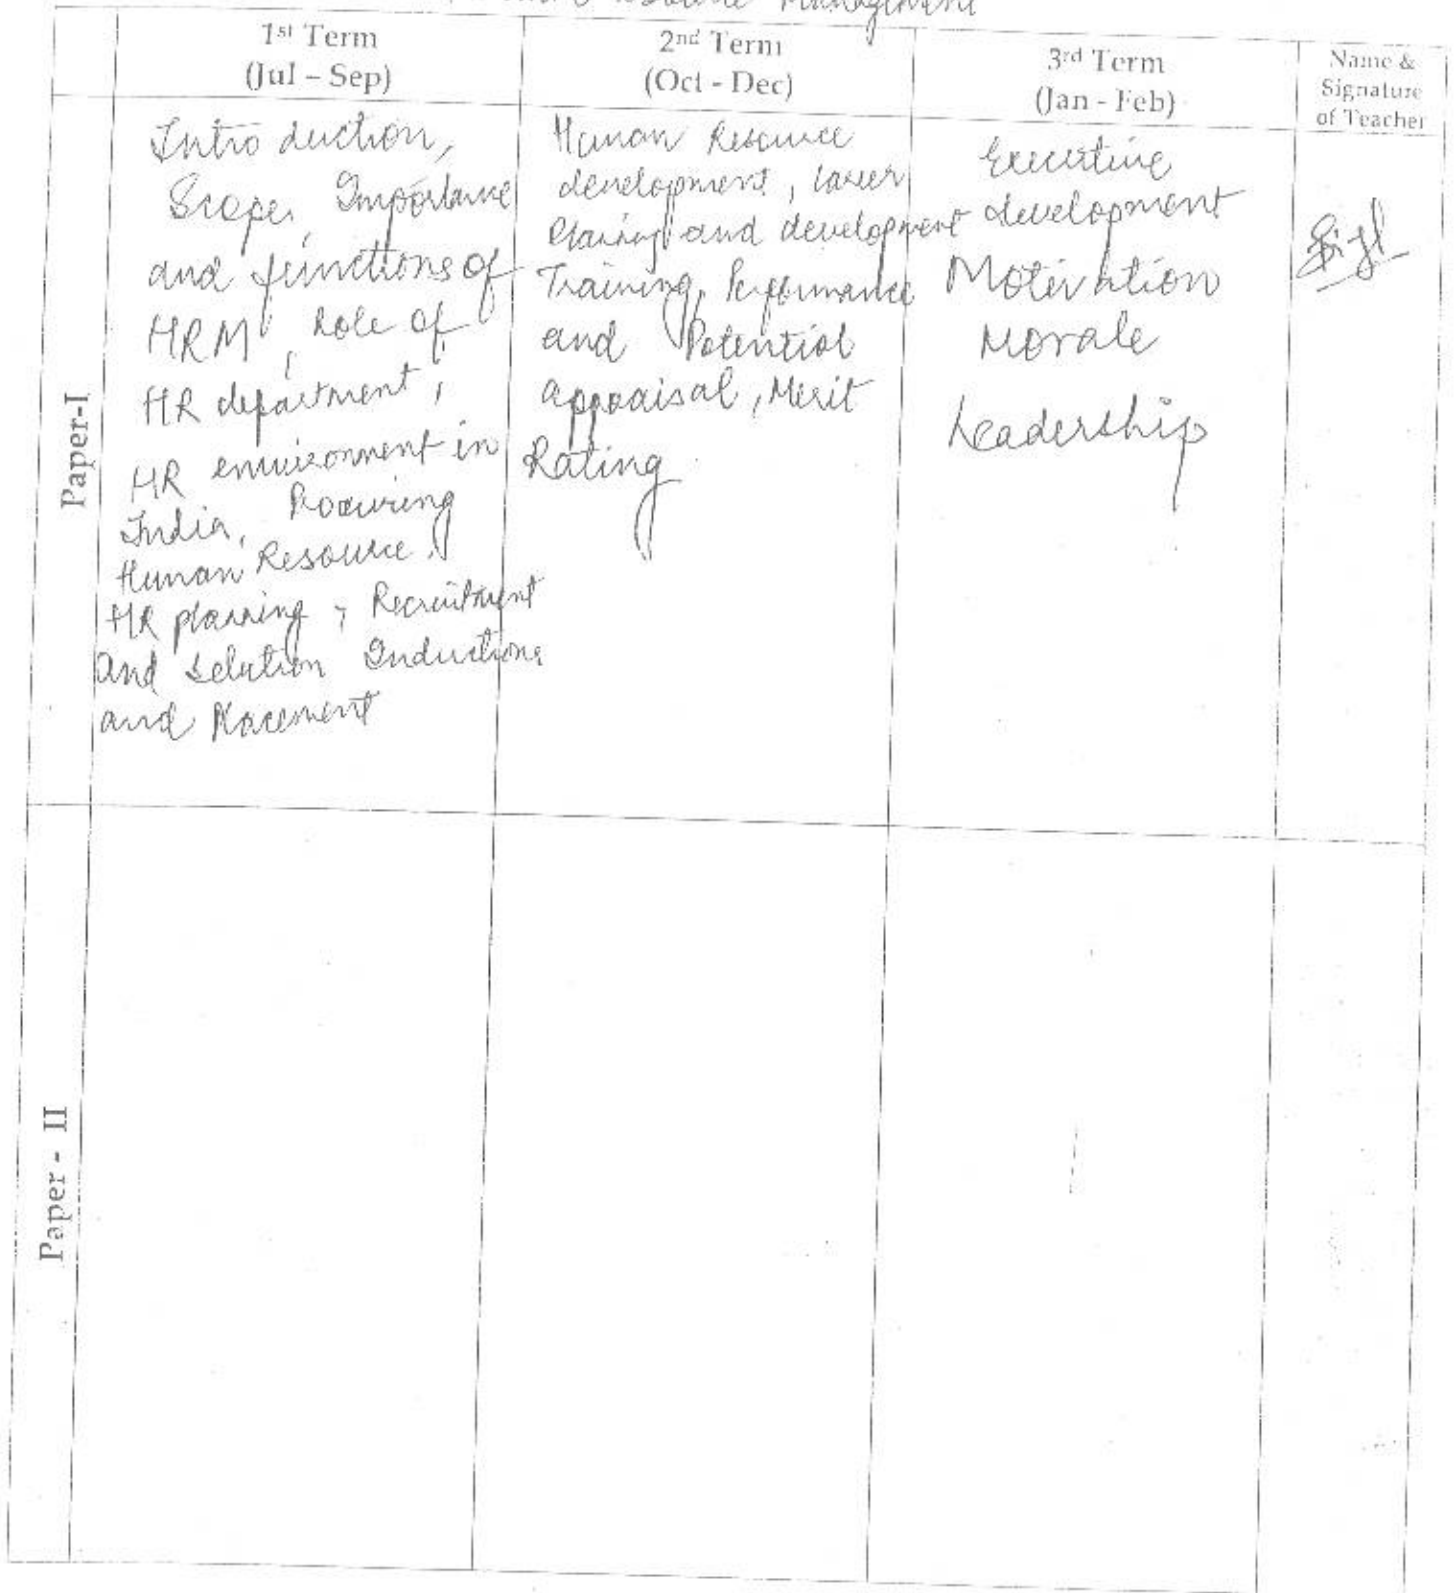 Resource Management
1st Term
(Jul - Sep)
2nd Term
(Oct - Dec)
3rd Term
(Jan - Feb)
Name &
Signature
of Teacher
Paper-I
Introduction,
Scope, Importance
and functions of
HRM, Role of
HR department,
HR environment in
India, Procuring
Human Resource.
HR planning, Recruitment
and Selution Inductions
and Placement
Human Resource
development, Career
Planing and development
Training, Performance
and Potential
appraisal, Merit
Rating
Executive
development
Motivation
Morale
Leadership
Paper - II